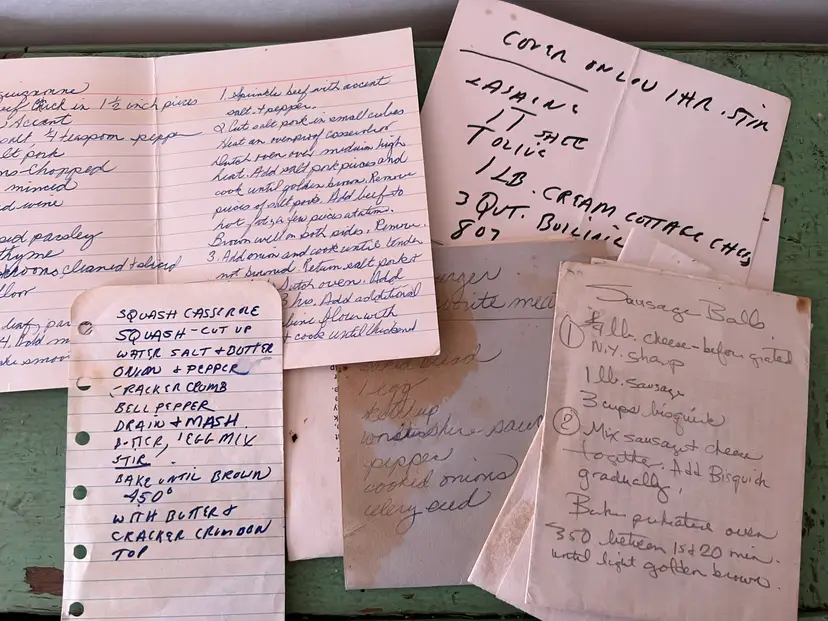 beef thick in 1 1/2 inch pieces
Accent
salt, 1/4 teaspoon pepper
salt pork
chopped
minced
wine
parsley
thyme
cleaned & sliced
1. Sprinkle beef with accent
salt & pepper.
2. Cut salt pork in small cubes
Heat an ovenproof casserole or
Dutch oven over medium high
heat. Add salt pork pieces and
cook until golden brown. Remove
pieces of salt pork. Add beef to
hot fat, a few pieces at a time.
Brown well on both sides. Remove.
3. Add onion and cook until tender
not burned. Return salt pork &
Dutch oven. Add
3 hrs. Add additional
flour with
& cook until thickened
4. Add
COVER ON LOW 1 HR. STIR
LASAGNE
1 T SALT
T OLIVE
1 LB. CREAM COTTAGE CHEES
3 QUT. BOILING
8 OZ
SQUASH CASSEROLE
SQUASH - CUT UP
WATER SALT & BUTTER
ONION & PEPPER
CRACKER CRUMB
BELL PEPPER
DRAIN & MASH
BUTTER, 1 EGG MIX
STIR
BAKE UNTIL BROWN
450°
WITH BUTTER &
CRACKER CRUMB ON
TOP
bread
1 egg
ketchup
pepper
cooked onions
celery seed
Sausage Balls
① 3/4 lb. cheese - before grated
N.Y. Sharp
1 lb. sausage
3 cups bisquick
② Mix sausage & cheese
together. Add Bisquick
gradually,
Bake preheated oven
350 between 15 & 20 min.
until light golden brown.